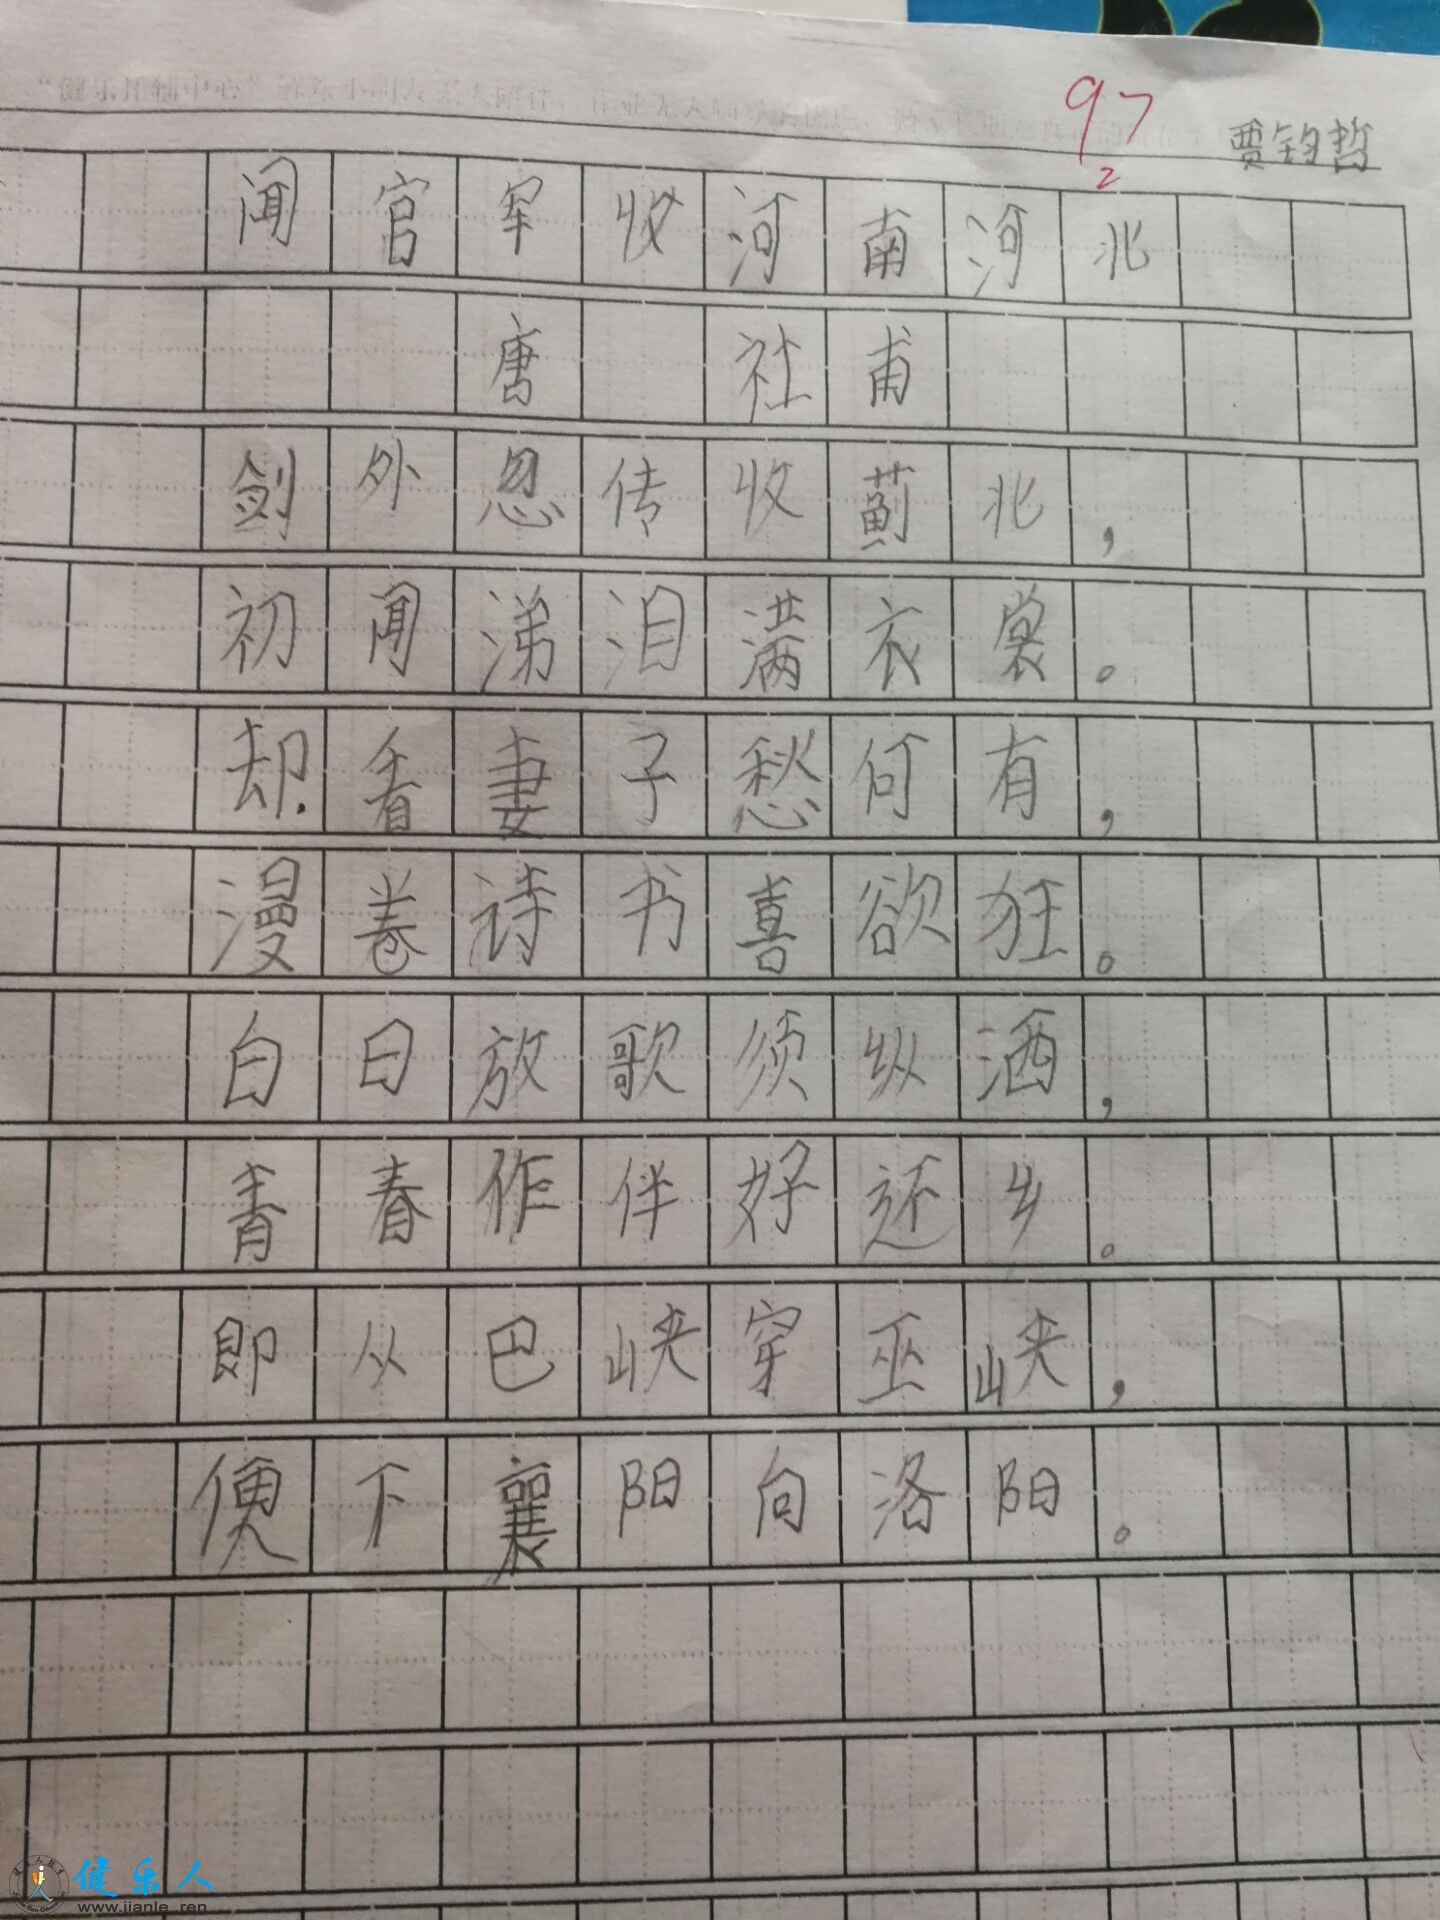 97
2
贾钧哲
闻官军收河南河北
唐 杜甫
剑外忽传收蓟北，
初闻涕泪满衣裳。
却看妻子愁何有，
漫卷诗书喜欲狂。
白日放歌须纵酒，
青春作伴好还乡。
即从巴峡穿巫峡，
便下襄阳向洛阳。
健乐人
www.jianle.ren